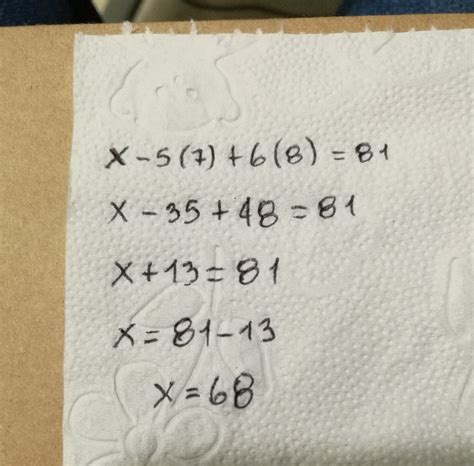 x-5(7)+6(8)=81
x-35+48=81
x+13=81
x=81-13
x=68